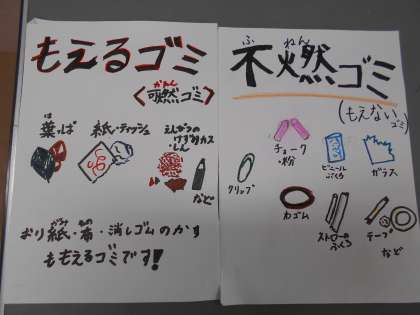 もえるゴミ
かねん
〈可燃ゴミ〉
は
葉っぱ
紙・ティッシュ
えんぴつの
けずりカス
・しん
など
おり紙・布・消しゴムのかす
がみ
ぬの
ももえるゴミです!
ふねん
不燃ゴミ
(もえないゴミ)
チョーク
・粉
ビニール
ぶくろ
ガラス
クリップ
カゴム
ストローの
ふくろ
テープ
など